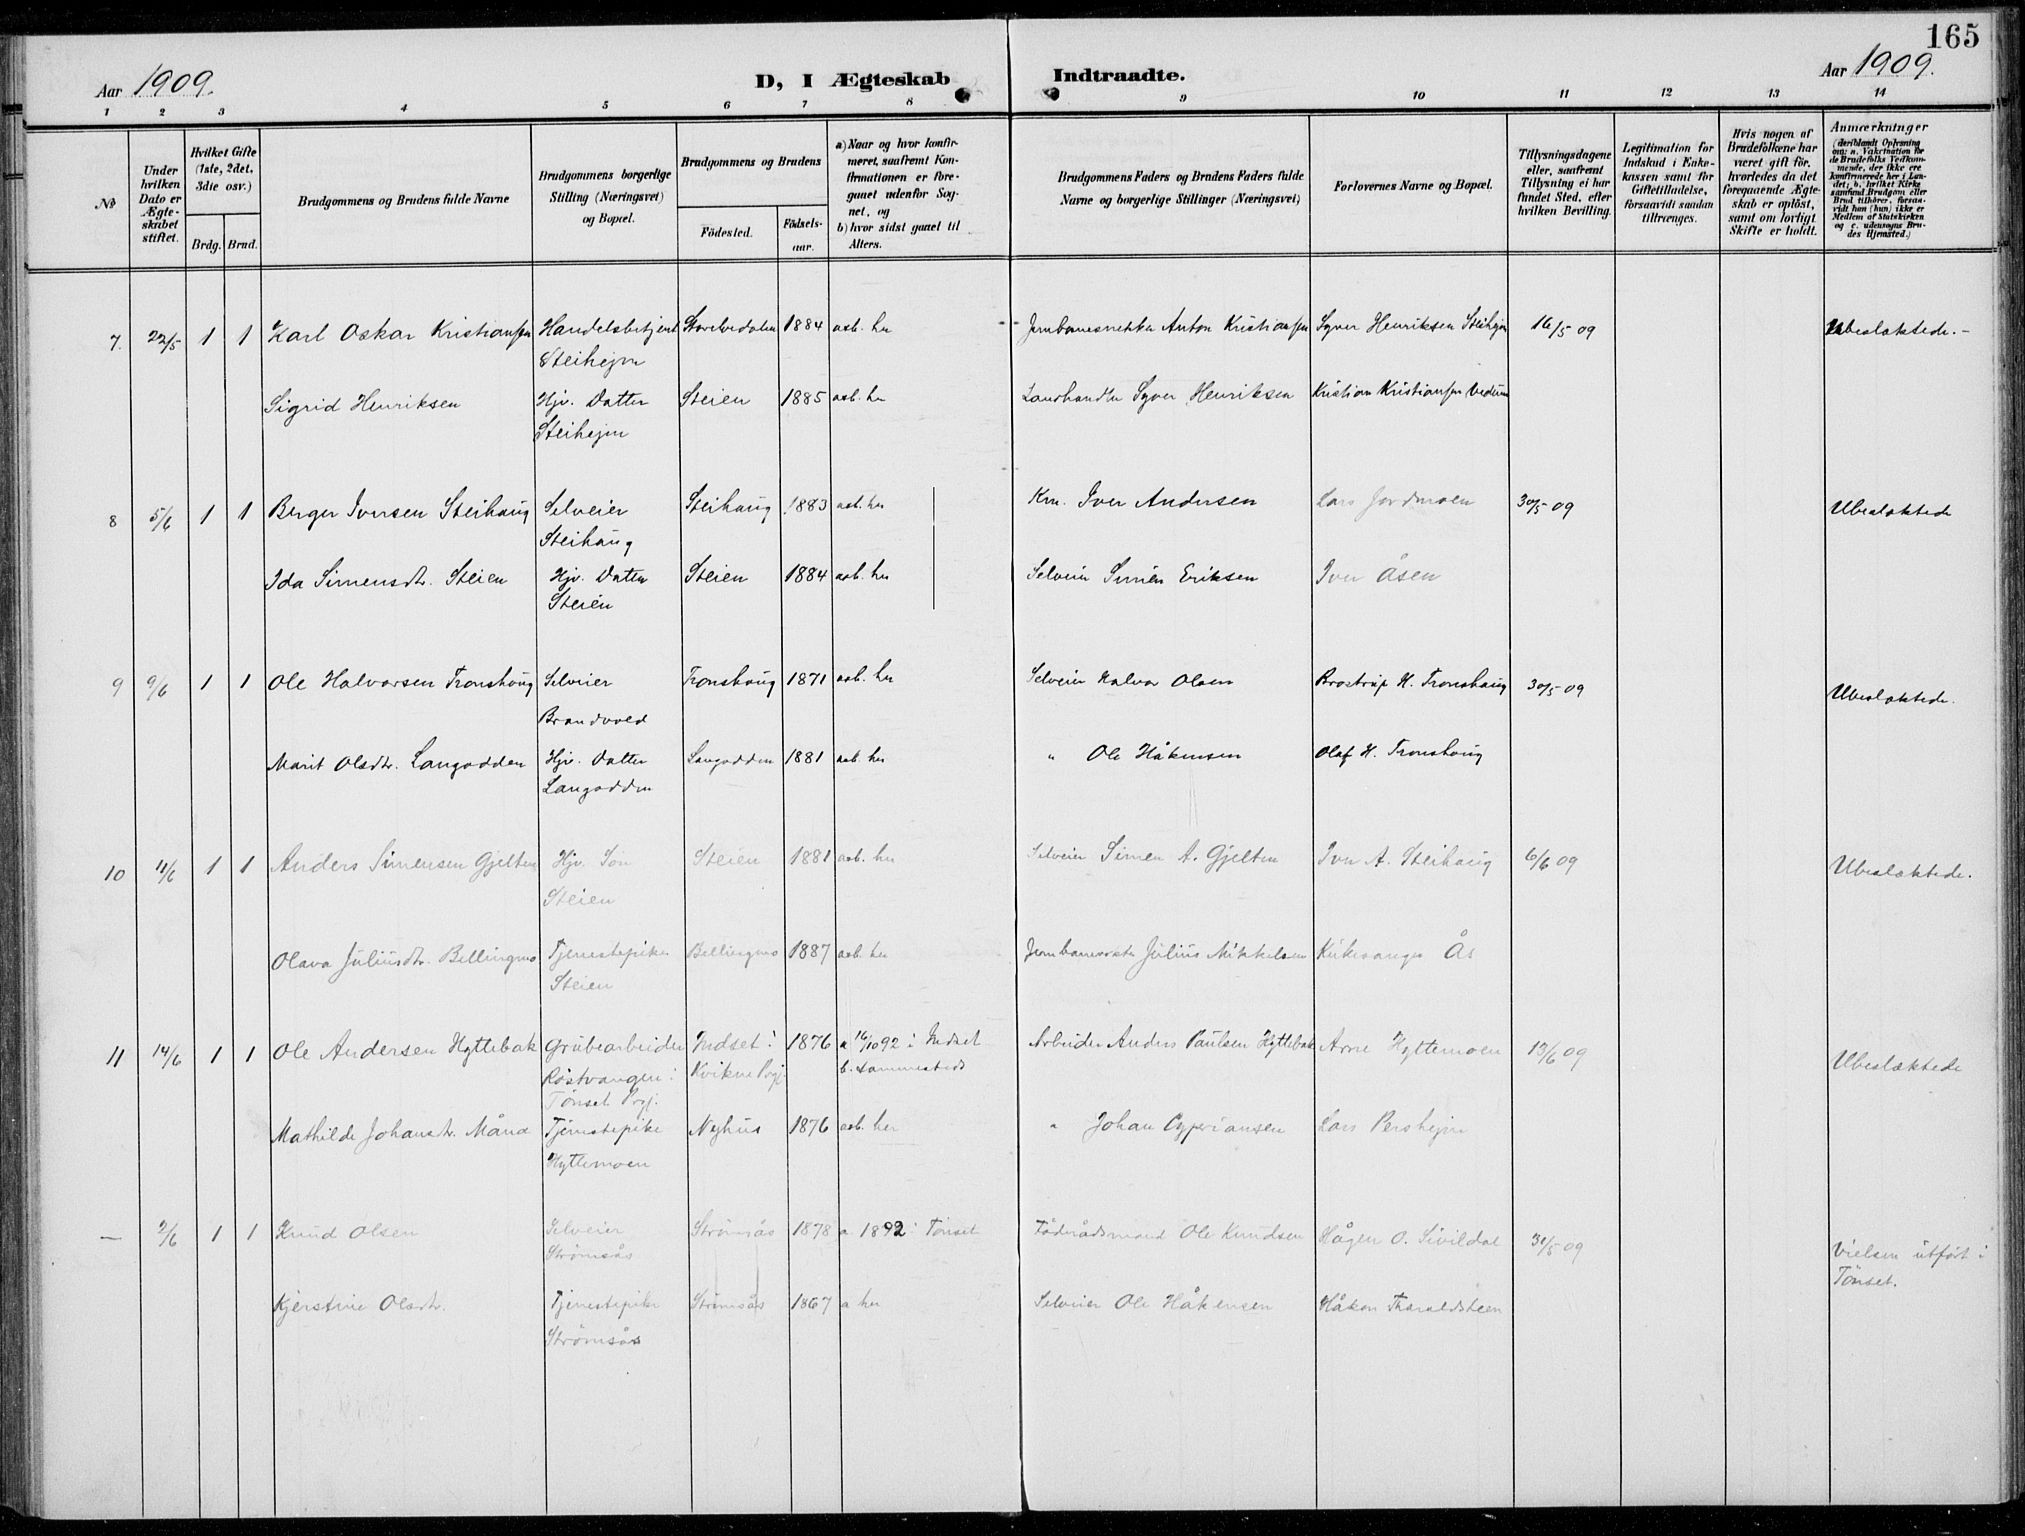 165
Aar 1909.
D, I Ægteskab Indtraadte.
Aar 1909.
1 2 3 4 5 6 7 8 9 10 11 12 13 14
No
Under hvilken Dato er Ægteskabet stiftet.
Hvilket Gifte (1ste, 2det, 3die osv.)
Brdg. Brud.
Brudgommens og Brudens fulde Navne
Brudgommens borgerlige Stilling (Næringsvei) og Bopæl.
Brudgommens og Brudens
Födested. Födsels-aar.
a) Naar og hvor konfirmeret, saafremt Konfirmationen er foregaaet udenfor Sognet, og
b) hvor sidst gaaet til Alters.
Brudgommens Faders og Brudens Faders fulde Navne og borgerlige Stillinger (Næringsvei)
Forlovernes Navne og Bopæl.
Tillysningsdagene eller, saafremt Tillysning ei har fundet Sted, efter hvilken Bevilling.
Legitimation for Indskud i Enkekassen samt for Giftetilladelse, forsaavidt saadan tiltrænges.
Hvis nogen af Brudefolkene har været gift för, hvorledes da det foregaaende Ægteskab er oplöst, samt om lovligt Skifte er holdt.
Anmærkninger (deriblandt Oplysning om: a. Vakcination for de Brudefolks Vedkommende, der ikke ere konfirmerede her i Landet; b. hvilket Kirkesamfund Brudgom eller Brud tilhörer, forsaavidt han (hun) ikke er Medlem af Statskirken og c. udensogns Brudes Hjemsted.)
7. 22/5 1 1 Karl Oskar Kristiansen Handelsbetjent 1884 aab. her Anton Kristiansen Syver Henriksen Steihejm 16/5 09 Ubeslæktede.-
Steihejm
Sigrid Henriksen Hjv. Datter Steien 1885 aab. her Landhandler Syver Henriksen Kristian Kristiansen
Steihejm
8 5/6 1 1 Berger Iversen Steihaug Selveier Steihaug 1883 aab. her Iver Andersen Lars Jordmoen 30/5 09 Ubeslæktede
Steihaug
Ida Simensdtr. Steien Hjv. Datter Steien 1884 aab. her Selveier Simen Eriksen Iver Åsen
Steien
9 9/6 1 1 Ole Halvorsen Tronshaug Selveier Tronshaug 1871 aab. her Selveier Halvor Olsen Brostrup H. Tronshaug 30/5 09 Ubeslæktede.
Brandvold
Marit Olsdtr. Langodden Hjv. Datter Langodden 1881 aab. her " Ole Håkensen Olaf H. Tronshaug
Langodden
10 11/6 1 1 Anders Simensen Gjelten Hjv. Søn Steien 1881 aab. her Selveier Simen A. Gjelten Iver A. Steihaug 6/6 09 Ubeslæktede.
Steien
Olava Juliusdtr. Bellingmo Tjenestepike Bellingmo 1887 aab. her Julius Mikkelsen Kirkesanger Ås
Steien
11 14/6 1 1 Ole Andersen Hyttebak Grubearbeider Indset i 1876 a 16/10 92 i Indset Arbeider Anders Paulsen Hyttebak Arne Hyttemoen 13/6 09 Ubeslæktede
Røstvangen i Kvikne Prgj. b. sammesteds
Tönset Prgj.
Mathilde Johansdtr. Måna Tjenestepike Nyhus 1876 aab. her " Johan Cypriansen Lars Pershejm
Hyttemoen
— 2/6 1 1 Knud Olsen Selveier Strömsås 1878 a 1892 i Tönset Föderådsmand Ole Knudsen Hågen O. Sivildal 31/5 09 Vielsen utført i
Strömsås Tönset.
Kjerstine Olsdtr. Tjenestepike Strömsås 1867 a her Selveier Ole Håkensen Håkon Tharaldsteen
Strömsås